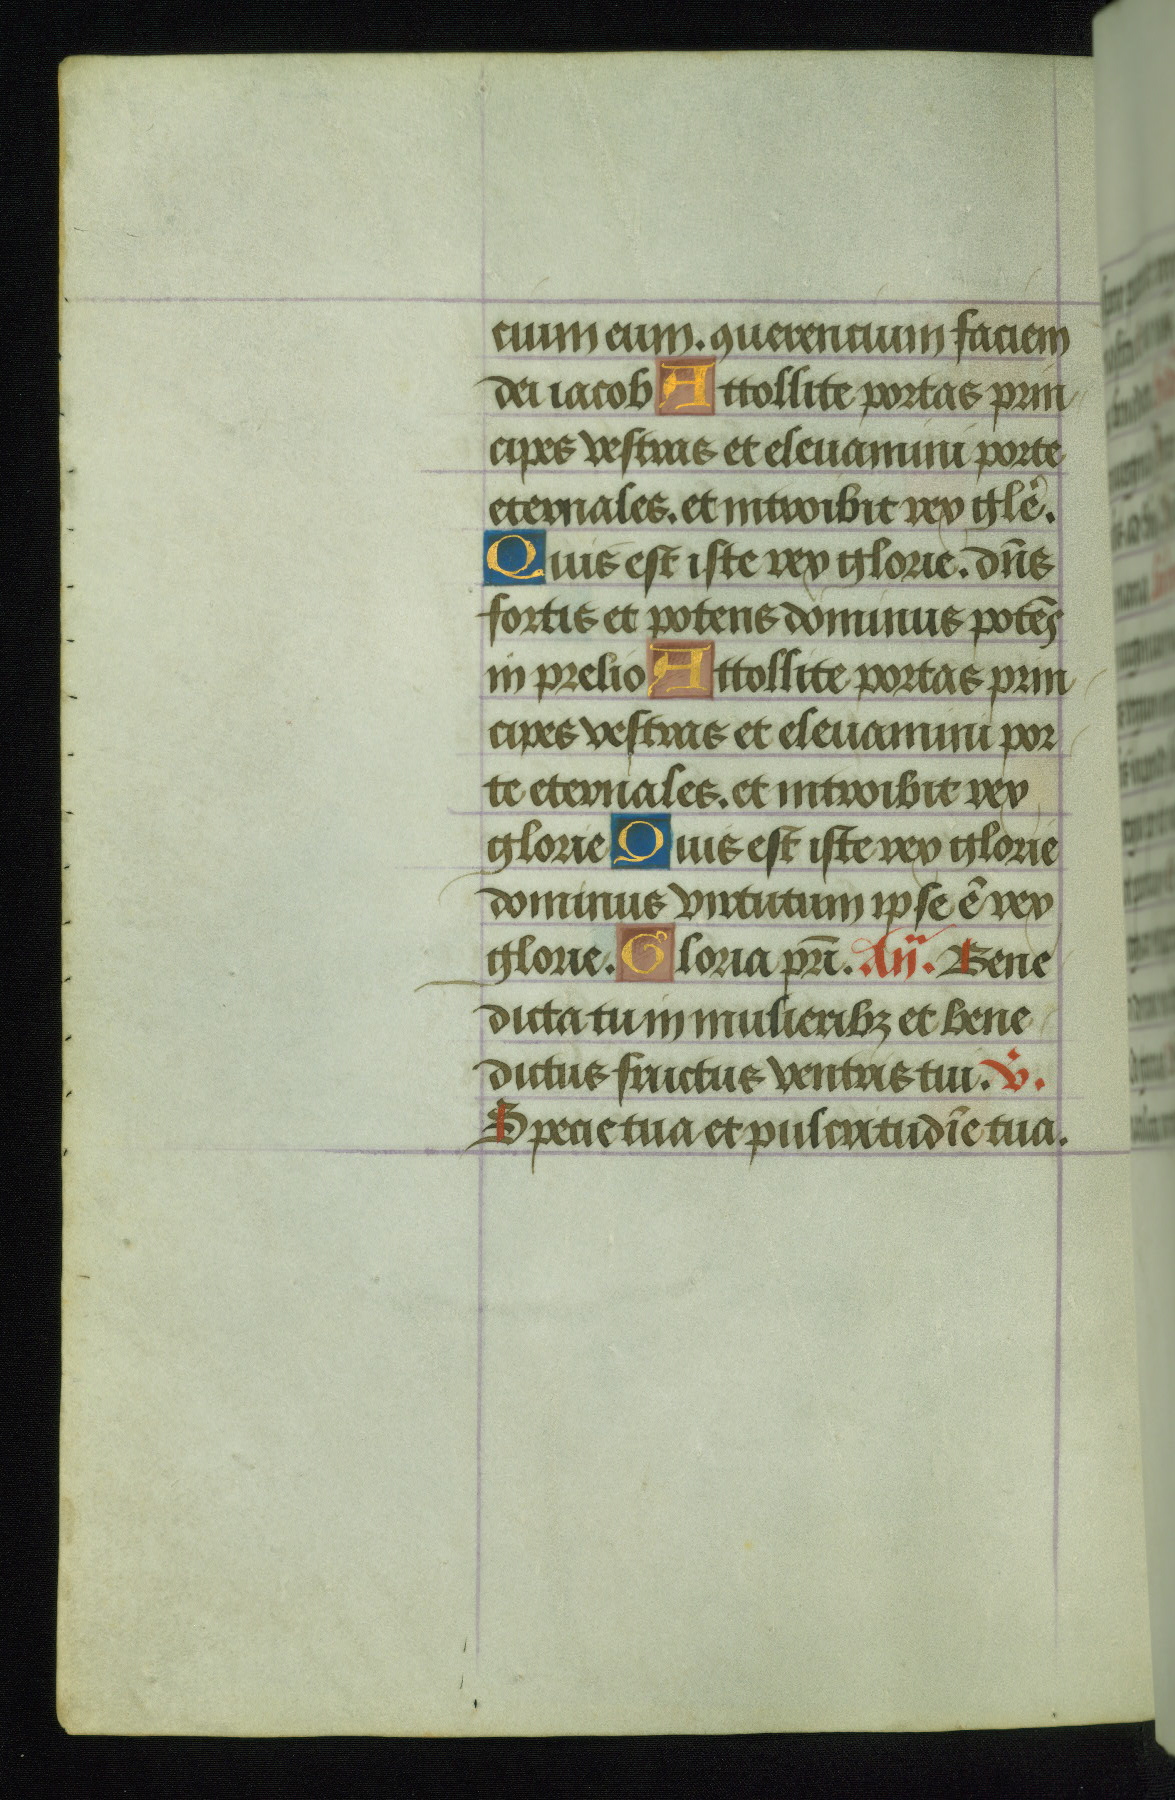 cium eum. querencium faciem
dei iacob Attollite portas prin
cipes vestras et eleuamini porte
eternales. et introibit rex glē.
Quis est iste rex glorie. dñs
fortis et potens dominus potēs
in prelio Attollite portas prin
cipes vestras et eleuamini por
te eternales. et introibit rex
glorie Quis est iste rex glorie
dominus virtutum ipse ē rex
glorie. Gloria pr̄i. Añ. Bene
dicta tu in mulieribꝫ et bene
dictus fructus ventris tui. V̉.
Specie tua et pulcritudīe tua.